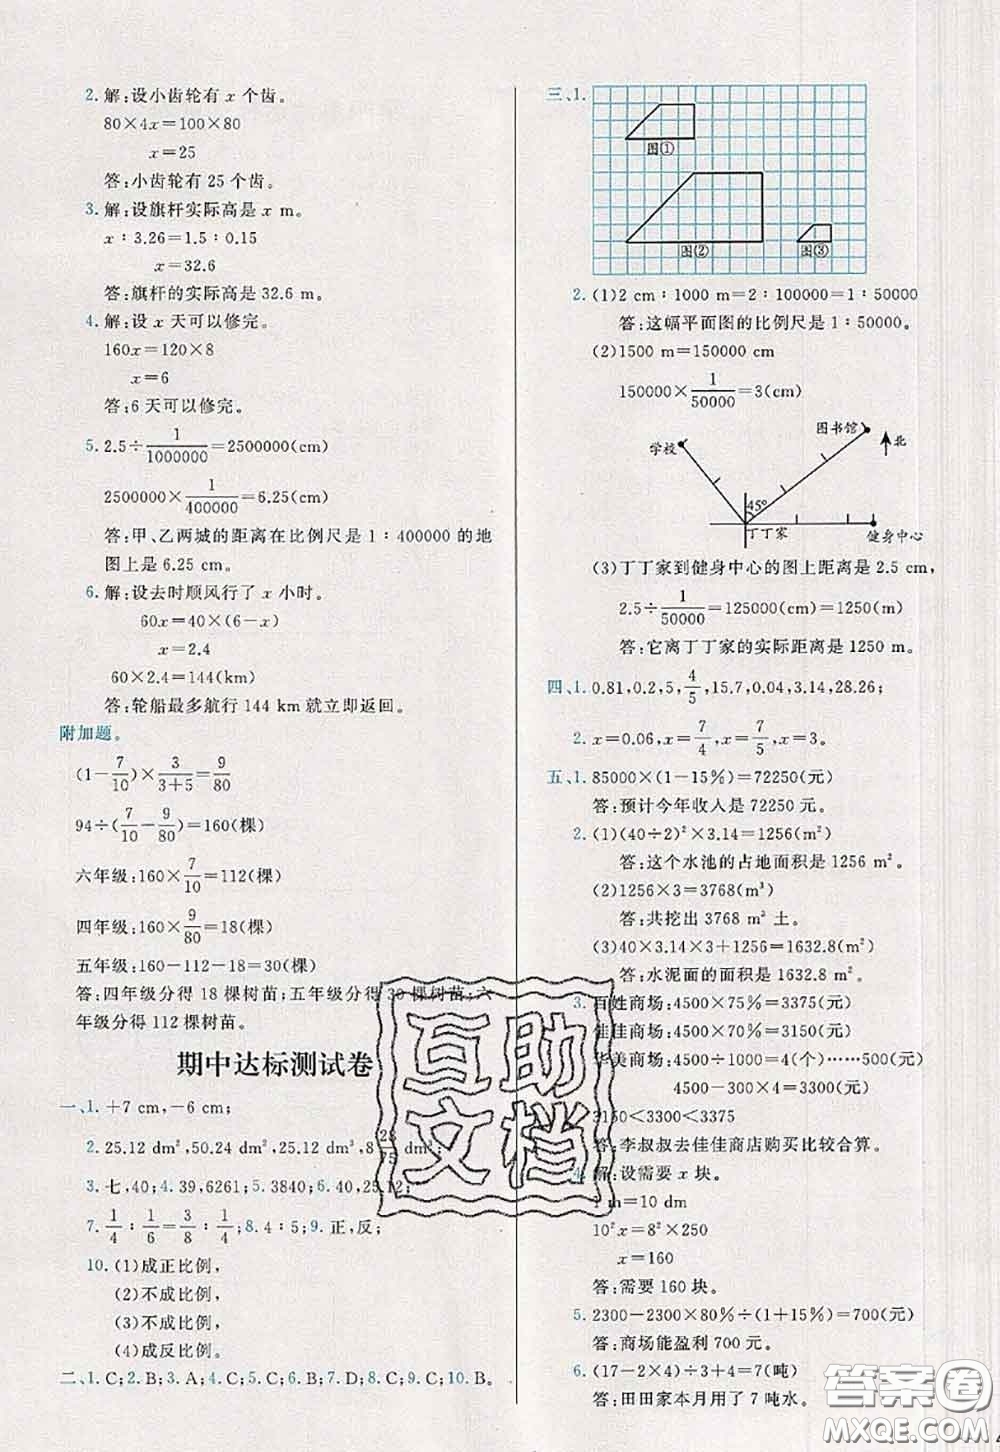 2. 解:设小齿轮有 x 个齿。
80×4x=100×80
x=25
答:小齿轮有 25 个齿。
3. 解:设旗杆实际高是 x m。
x∶3.26=1.5∶0.15
x=32.6
答:旗杆的实际高是 32.6 m。
4. 解:设 x 天可以修完。
160x=120×8
x=6
答:6 天可以修完。
5. 2.5÷1/1000000=2500000(cm)
2500000×1/400000=6.25(cm)
答:甲、乙两城的距离在比例尺是 1∶400000 的地
图上是 6.25 cm。
6. 解:设去时顺风行了 x 小时。
60x=40×(6-x)
x=2.4
60×2.4=144(km)
答:轮船最多航行 144 km 就立即返回。
附加题。
(1-7/10)×3/(3+5)=9/80
94÷(7/10-9/80)=160(棵)
六年级:160×7/10=112(棵)
四年级:160×9/80=18(棵)
五年级:160-112-18=30(棵)
答:四年级分得 18 棵树苗;五年级分得 30 棵树苗;六
年级分得 112 棵树苗。
期中达标测试卷
一、1. +7 cm,-6 cm;
2. 25.12 dm²,50.24 dm²,25.12 dm³,8
3. 七,40;4. 39,6261;5. 3840;6. 40,25.12;
7. 1/4∶1/6=3/8∶1/4;8. 4∶5;9. 正,反;
10. (1)成正比例,
(2)不成比例,
(3)不成比例,
(4)成反比例。
二、1. C;2. B;3. A;4. C;5. C;6. B;7. D;8. C;9. C;10. B。
三、1.
图①
图②
图③
2. (1)2 cm∶1000 m=2∶100000=1∶50000
答:这幅平面图的比例尺是 1∶50000。
(2)1500 m=150000 cm
150000×1/50000=3(cm)
学校
图书馆
北
45°
丁丁家
健身中心
(3)丁丁家到健身中心的图上距离是 2.5 cm,
2.5÷1/50000=125000(cm)=1250(m)
答:它离丁丁家的实际距离是 1250 m。
四、1. 0.81,0.2,5,4/5,15.7,0.04,3.14,28.26;
2. x=0.06,x=7/4,x=7/5,x=3。
五、1. 85000×(1-15%)=72250(元)
答:预计今年收入是 72250 元。
2. (1)(40÷2)²×3.14=1256(m²)
答:这个水池的占地面积是 1256 m²。
(2)1256×3=3768(m³)
答:共挖出 3768 m³ 土。
(3)40×3.14×3+1256=1632.8(m²)
答:水泥面的面积是 1632.8 m²。
3. 百姓商场:4500×75%=3375(元)
佳佳商场:4500×70%=3150(元)
华美商场:4500÷1000=4(个)……500(元)
4500-300×4=3300(元)
3150<3300<3375
答:李叔叔去佳佳商店购买比较合算。
4. 解:设需要 x 块。
1 m=10 dm
10²x=8²×250
x=160
答:需要 160 块。
5. 2300-2300×80%÷(1+15%)=700(元)
答:商场能盈利 700 元。
6. (17-2×4)÷3+4=7(吨)
答:田田家本月用了 7 吨水。
互助
文档
答案圈
MXQE.COM